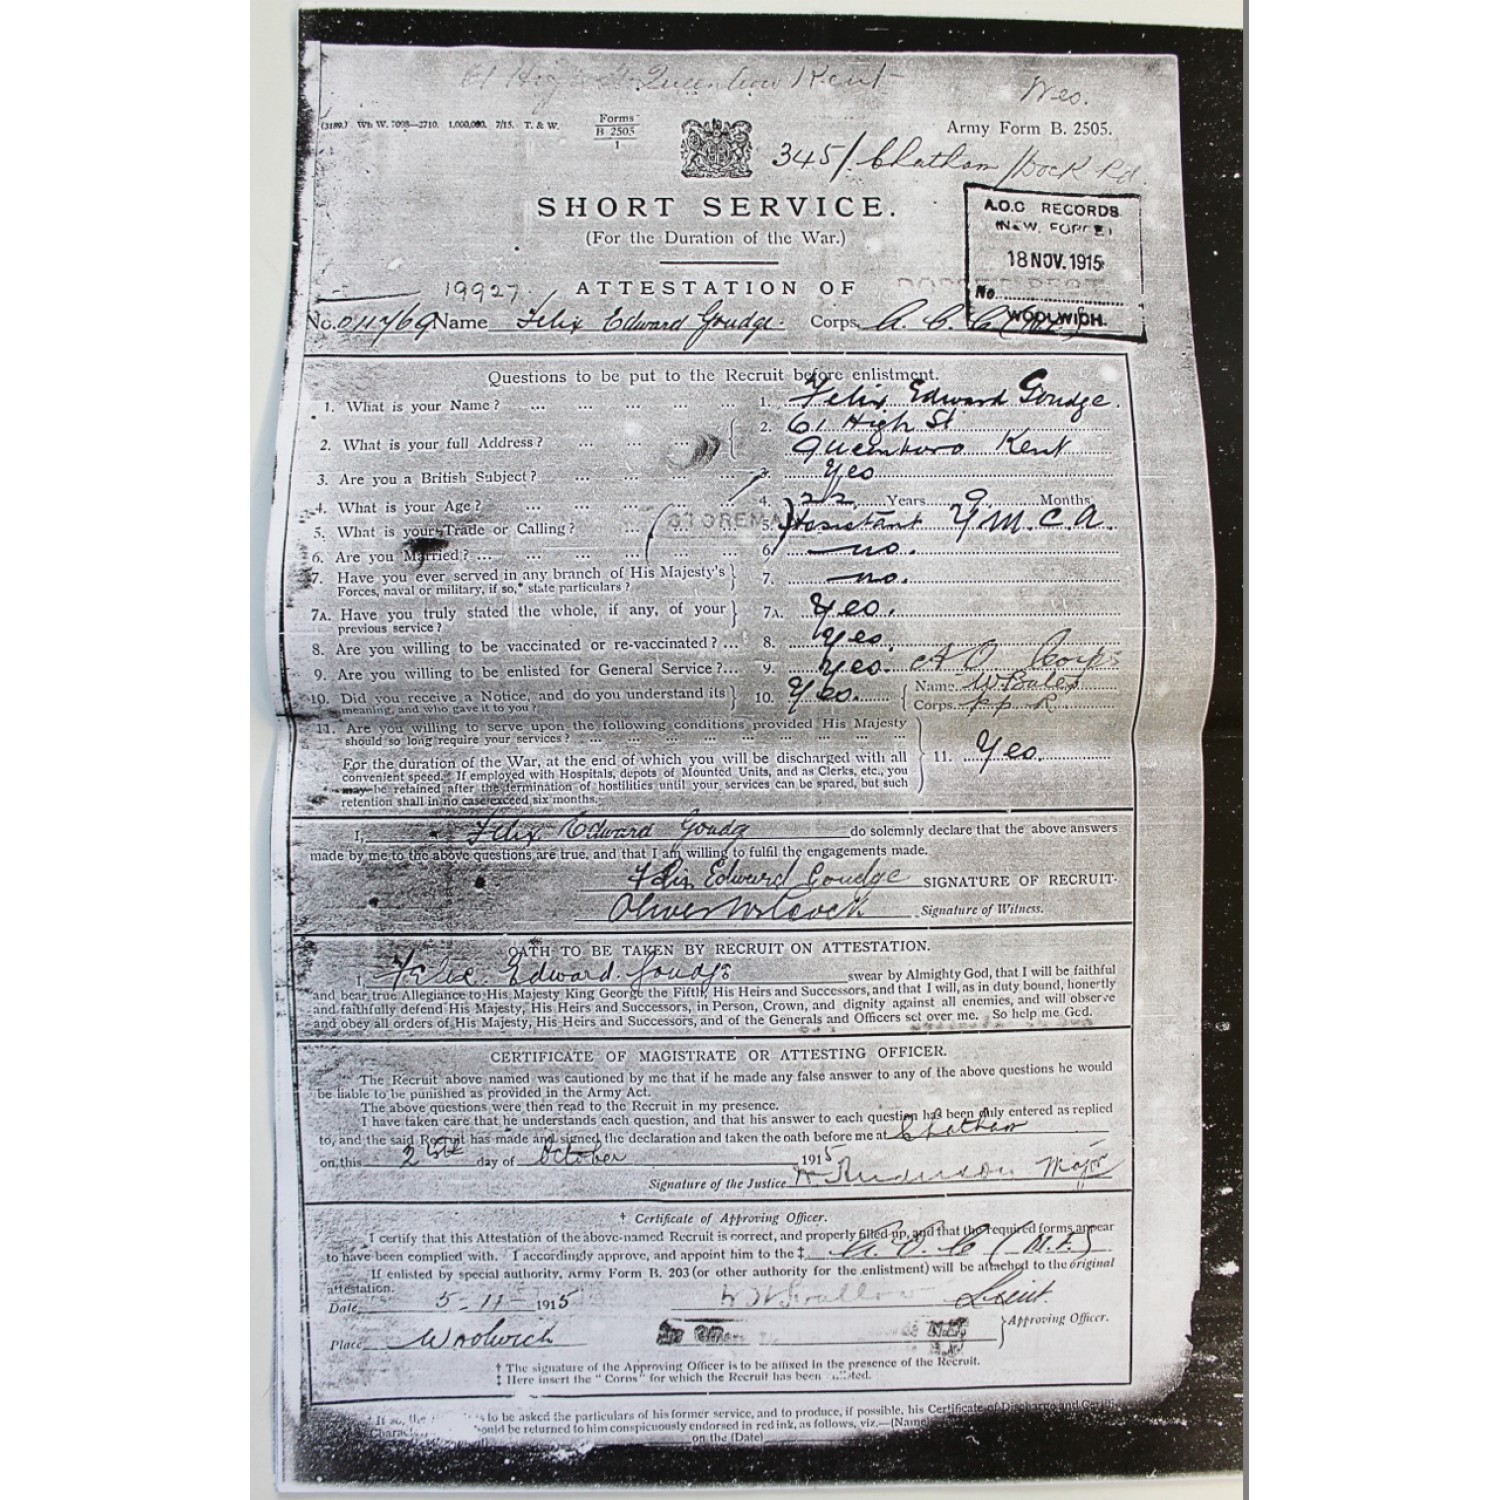 61 High St Queenboro Kent
Yes.
(3189.) Wt. W. 7098—2710. 1,000,000. 7/15. T. & W.
Forms
B 2505
1
Army Form B. 2505.
345/ Chatham / Dock Rd.
SHORT SERVICE.
(For the Duration of the War.)
A.O.C RECORDS
(NEW FORCE)
18 NOV. 1915
No.
WOOLWICH.
19927. ATTESTATION OF
No. 011769 Name Felix Edward Goudge. Corps
Questions to be put to the Recruit before enlistment.
1. What is your Name? ... 1. Felix Edward Goudge.
2. What is your full Address? ... 2. 61 High St
Queenboro Kent
3. Are you a British Subject? ... 3. Yes
4. What is your Age? ... 4. 22 Years 9 Months
5. What is your Trade or Calling? ... STOREMA 5. Assistant Y M C A.
6. Are you Married? ... 6. no.
7. Have you ever served in any branch of His Majesty's
Forces, naval or military, if so,* state particulars? 7. no.
7A. Have you truly stated the whole, if any, of your
previous service? 7A. Yes.
8. Are you willing to be vaccinated or re-vaccinated? ... 8. Yes.
9. Are you willing to be enlisted for General Service? ... 9. Yes. A O Corps
10. Did you receive a Notice, and do you understand its
meaning, and who gave it to you? 10. Yes. Name W Bales
Corps
11. Are you willing to serve upon the following conditions provided His Majesty
should so long require your services? ...
For the duration of the War, at the end of which you will be discharged with all 11. Yes.
convenient speed. If employed with Hospitals, depots of Mounted Units, and as Clerks, etc., you
may be retained after the termination of hostilities until your services can be spared, but such
retention shall in no case exceed six months.
I, Felix Edward Goudge do solemnly declare that the above answers
made by me to the above questions are true, and that I am willing to fulfil the engagements made.
Felix Edward Goudge SIGNATURE OF RECRUIT.
Signature of Witness.
OATH TO BE TAKEN BY RECRUIT ON ATTESTATION.
I, Felix Edward Goudge swear by Almighty God, that I will be faithful
and bear true Allegiance to His Majesty King George the Fifth, His Heirs and Successors, and that I will, as in duty bound, honestly
and faithfully defend His Majesty, His Heirs and Successors, in Person, Crown, and dignity against all enemies, and will observe
and obey all orders of His Majesty, His Heirs and Successors, and of the Generals and Officers set over me. So help me God.
CERTIFICATE OF MAGISTRATE OR ATTESTING OFFICER.
The Recruit above named was cautioned by me that if he made any false answer to any of the above questions he would
be liable to be punished as provided in the Army Act.
The above questions were then read to the Recruit in my presence.
I have taken care that he understands each question, and that his answer to each question has been duly entered as replied
to, and the said Recruit has made and signed the declaration and taken the oath before me at Chatham
on this day of October 1915
Signature of the Justice Anderson Major
† Certificate of Approving Officer.
I certify that this Attestation of the above-named Recruit is correct, and properly filled up, and that the required forms appear
to have been complied with. I accordingly approve, and appoint him to the ‡ A. O. C (N.F.)
If enlisted by special authority, Army Form B. 203 (or other authority for the enlistment) will be attached to the original
attestation.
Date 5-11-1915 Lieut.
Approving Officer.
Place Woolwich
† The signature of the Approving Officer is to be affixed in the presence of the Recruit.
‡ Here insert the "Corps" for which the Recruit has been
If so, the to be asked the particulars of his former service, and to produce, if possible, his Certificate of Discharge and
be returned to him conspicuously endorsed in red ink, as follows, viz.—(Name)
on the (Date)